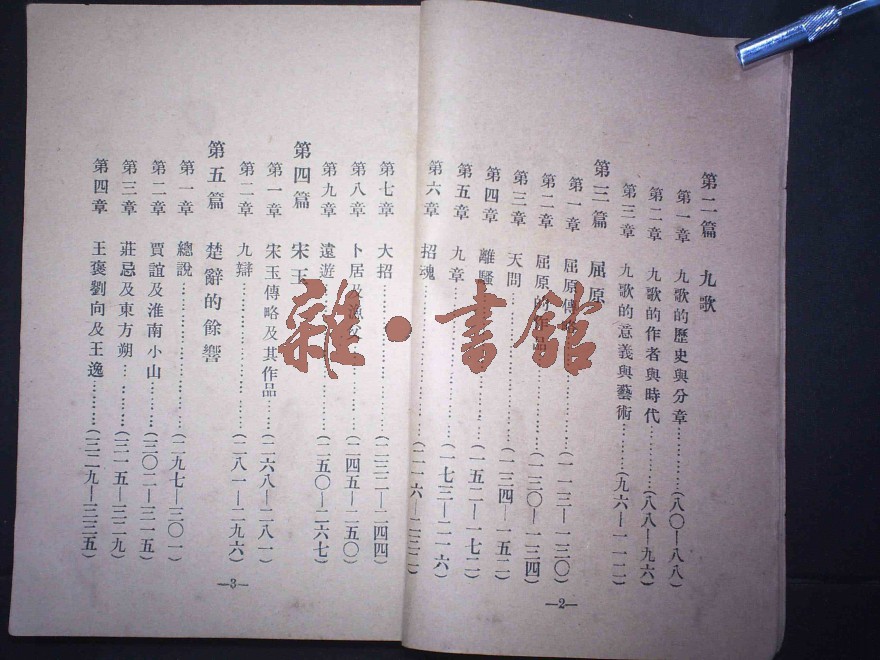 第二篇 九歌
第一章 九歌的歷史與分章…………(八〇—八八)
第二章 九歌的作者與時代…………(八八—九六)
第三章 九歌的意義與藝術…………(九六—一一二)
第三篇 屈原
第一章 屈原傳略…………(一一三—一三〇)
第二章 屈原的作品…………(一三〇—一三四)
第三章 天問…………(一三四—一五二)
第四章 離騷…………(一五二—一七二)
第五章 九章…………(一七三—二一六)
第六章 招魂…………(二一六—二三二)
—2—
第七章 大招…………(二三二—二四四)
第八章 卜居及漁父…………(二四五—二五〇)
第九章 遠遊…………(二五〇—二六七)
第四篇 宋玉
第一章 宋玉傳略及其作品…………(二六八—二八一)
第二章 九辯…………(二八一—二九六)
第五篇 楚辭的餘響
第一章 總說…………(二九七—三〇一)
第二章 賈誼及淮南小山…………(三〇二—三一五)
第三章 莊忌及東方朔…………(三一五—三二九)
第四章 王褒劉向及王逸…………(三二九—三三五)
—3—
雜·書館